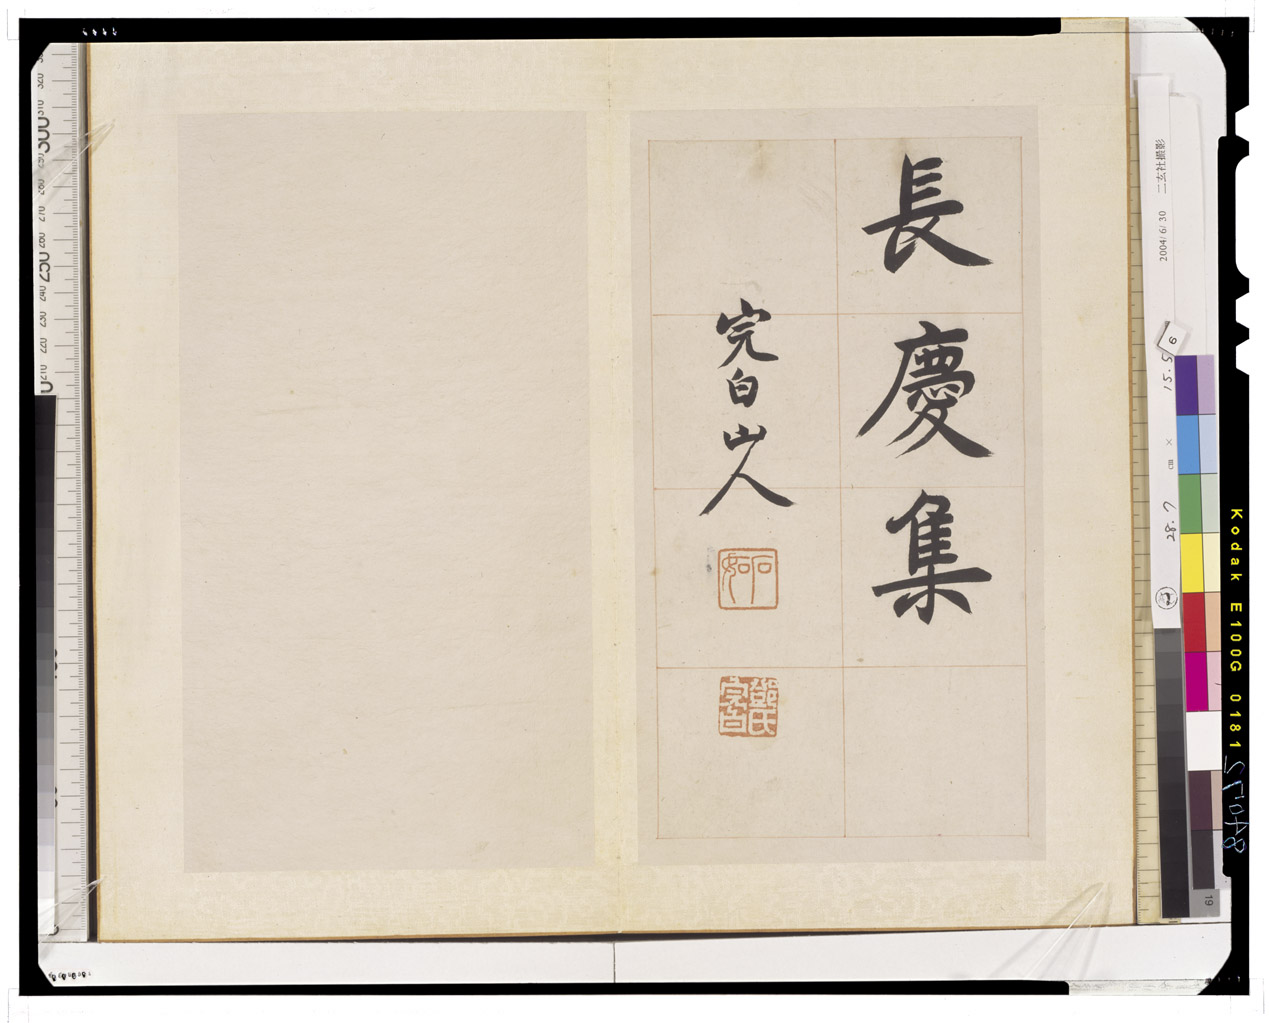 長慶集
完白山人
石如
鄧氏完白
2004/6/30 二玄社撮影
28.7 cm × 15.5
6
Kodak E100G 0181
19